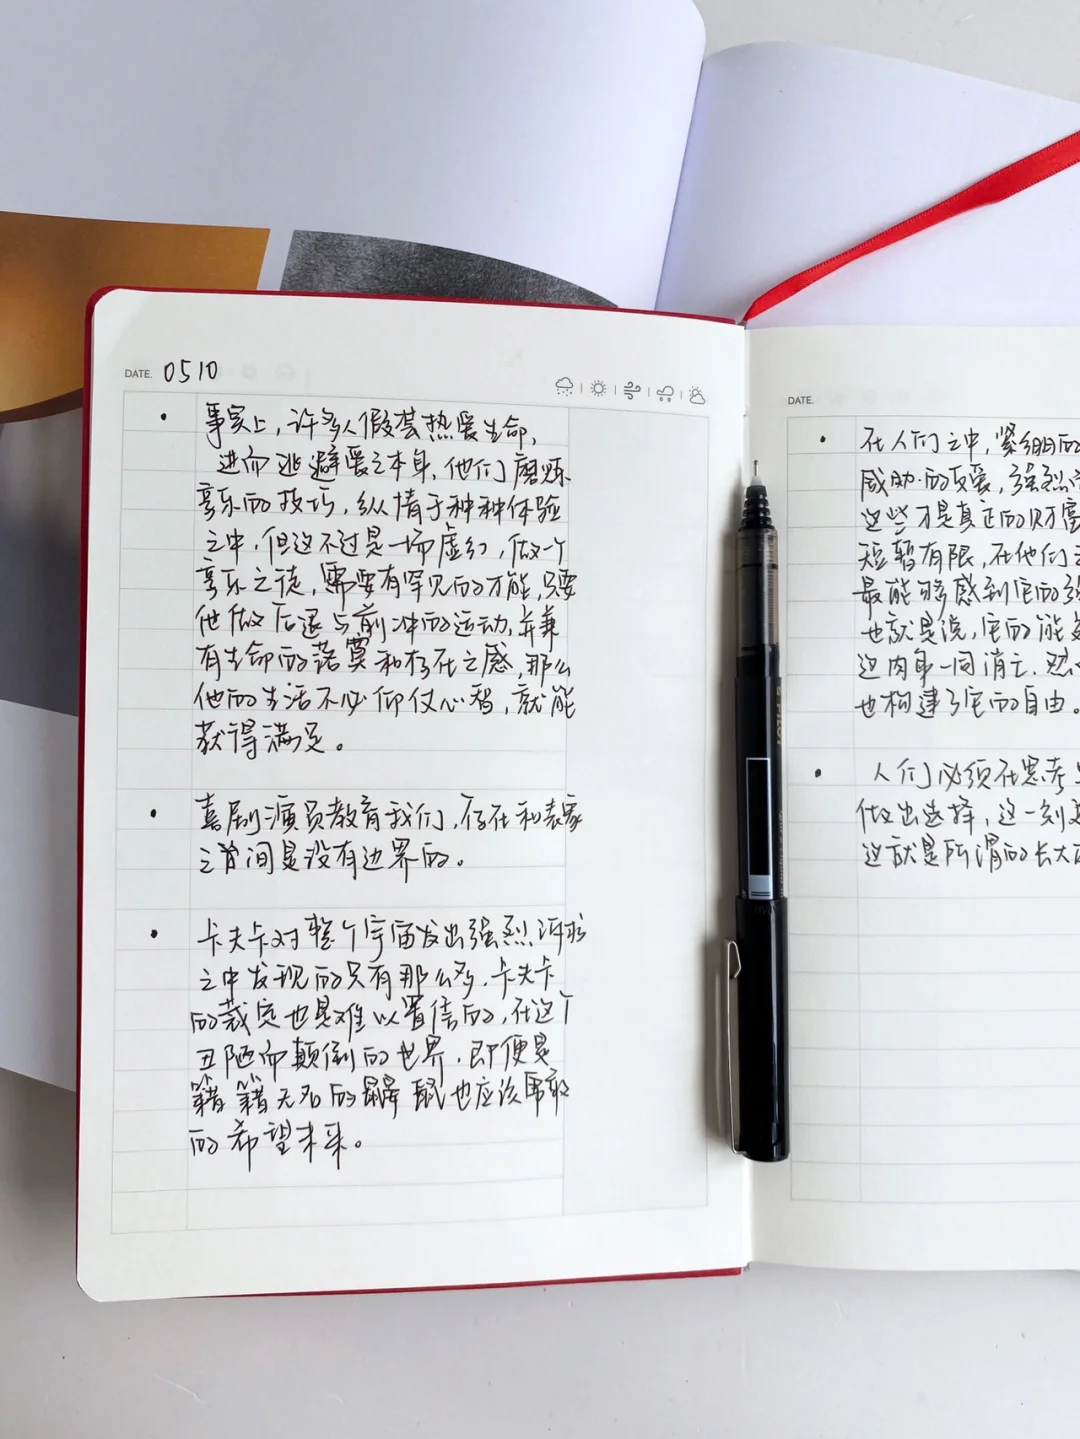 DATE. 0510
· 事实上,许多人假装热爱生命,
进而逃避爱之本身,他们磨炼
享乐的技巧,纵情于种种体验
之中,但这不过是一场虚幻,做一个
享乐之徒,需要有罕见的才能,只要
他做后退与前冲的运动,并兼
有生命的落寞和存在之感,那么
他的生活不必仰仗心智,就能
获得满足。
· 喜剧演员教育我们,存在和表象
之间是没有边界的。
· 卡夫卡对整个宇宙发出强烈诉求
之中发现的只有那么多,卡夫卡
的裁定也是难以置信的,在这个
丑陋而颠倒的世界,即便是
籍籍无名的鼹鼠也应该勇敢
的希望未来。
DATE.
· 在人们之中,紧绷的
感动的反爱,强烈
这些才是真正的财富
短暂有限,在他们
最能够感到它的
也就是说,它的能
边肉身一同消亡.然
也构建了它的自由。
· 人们必须在思考
做出选择,这一刻
这就是所谓的长大
PILOT